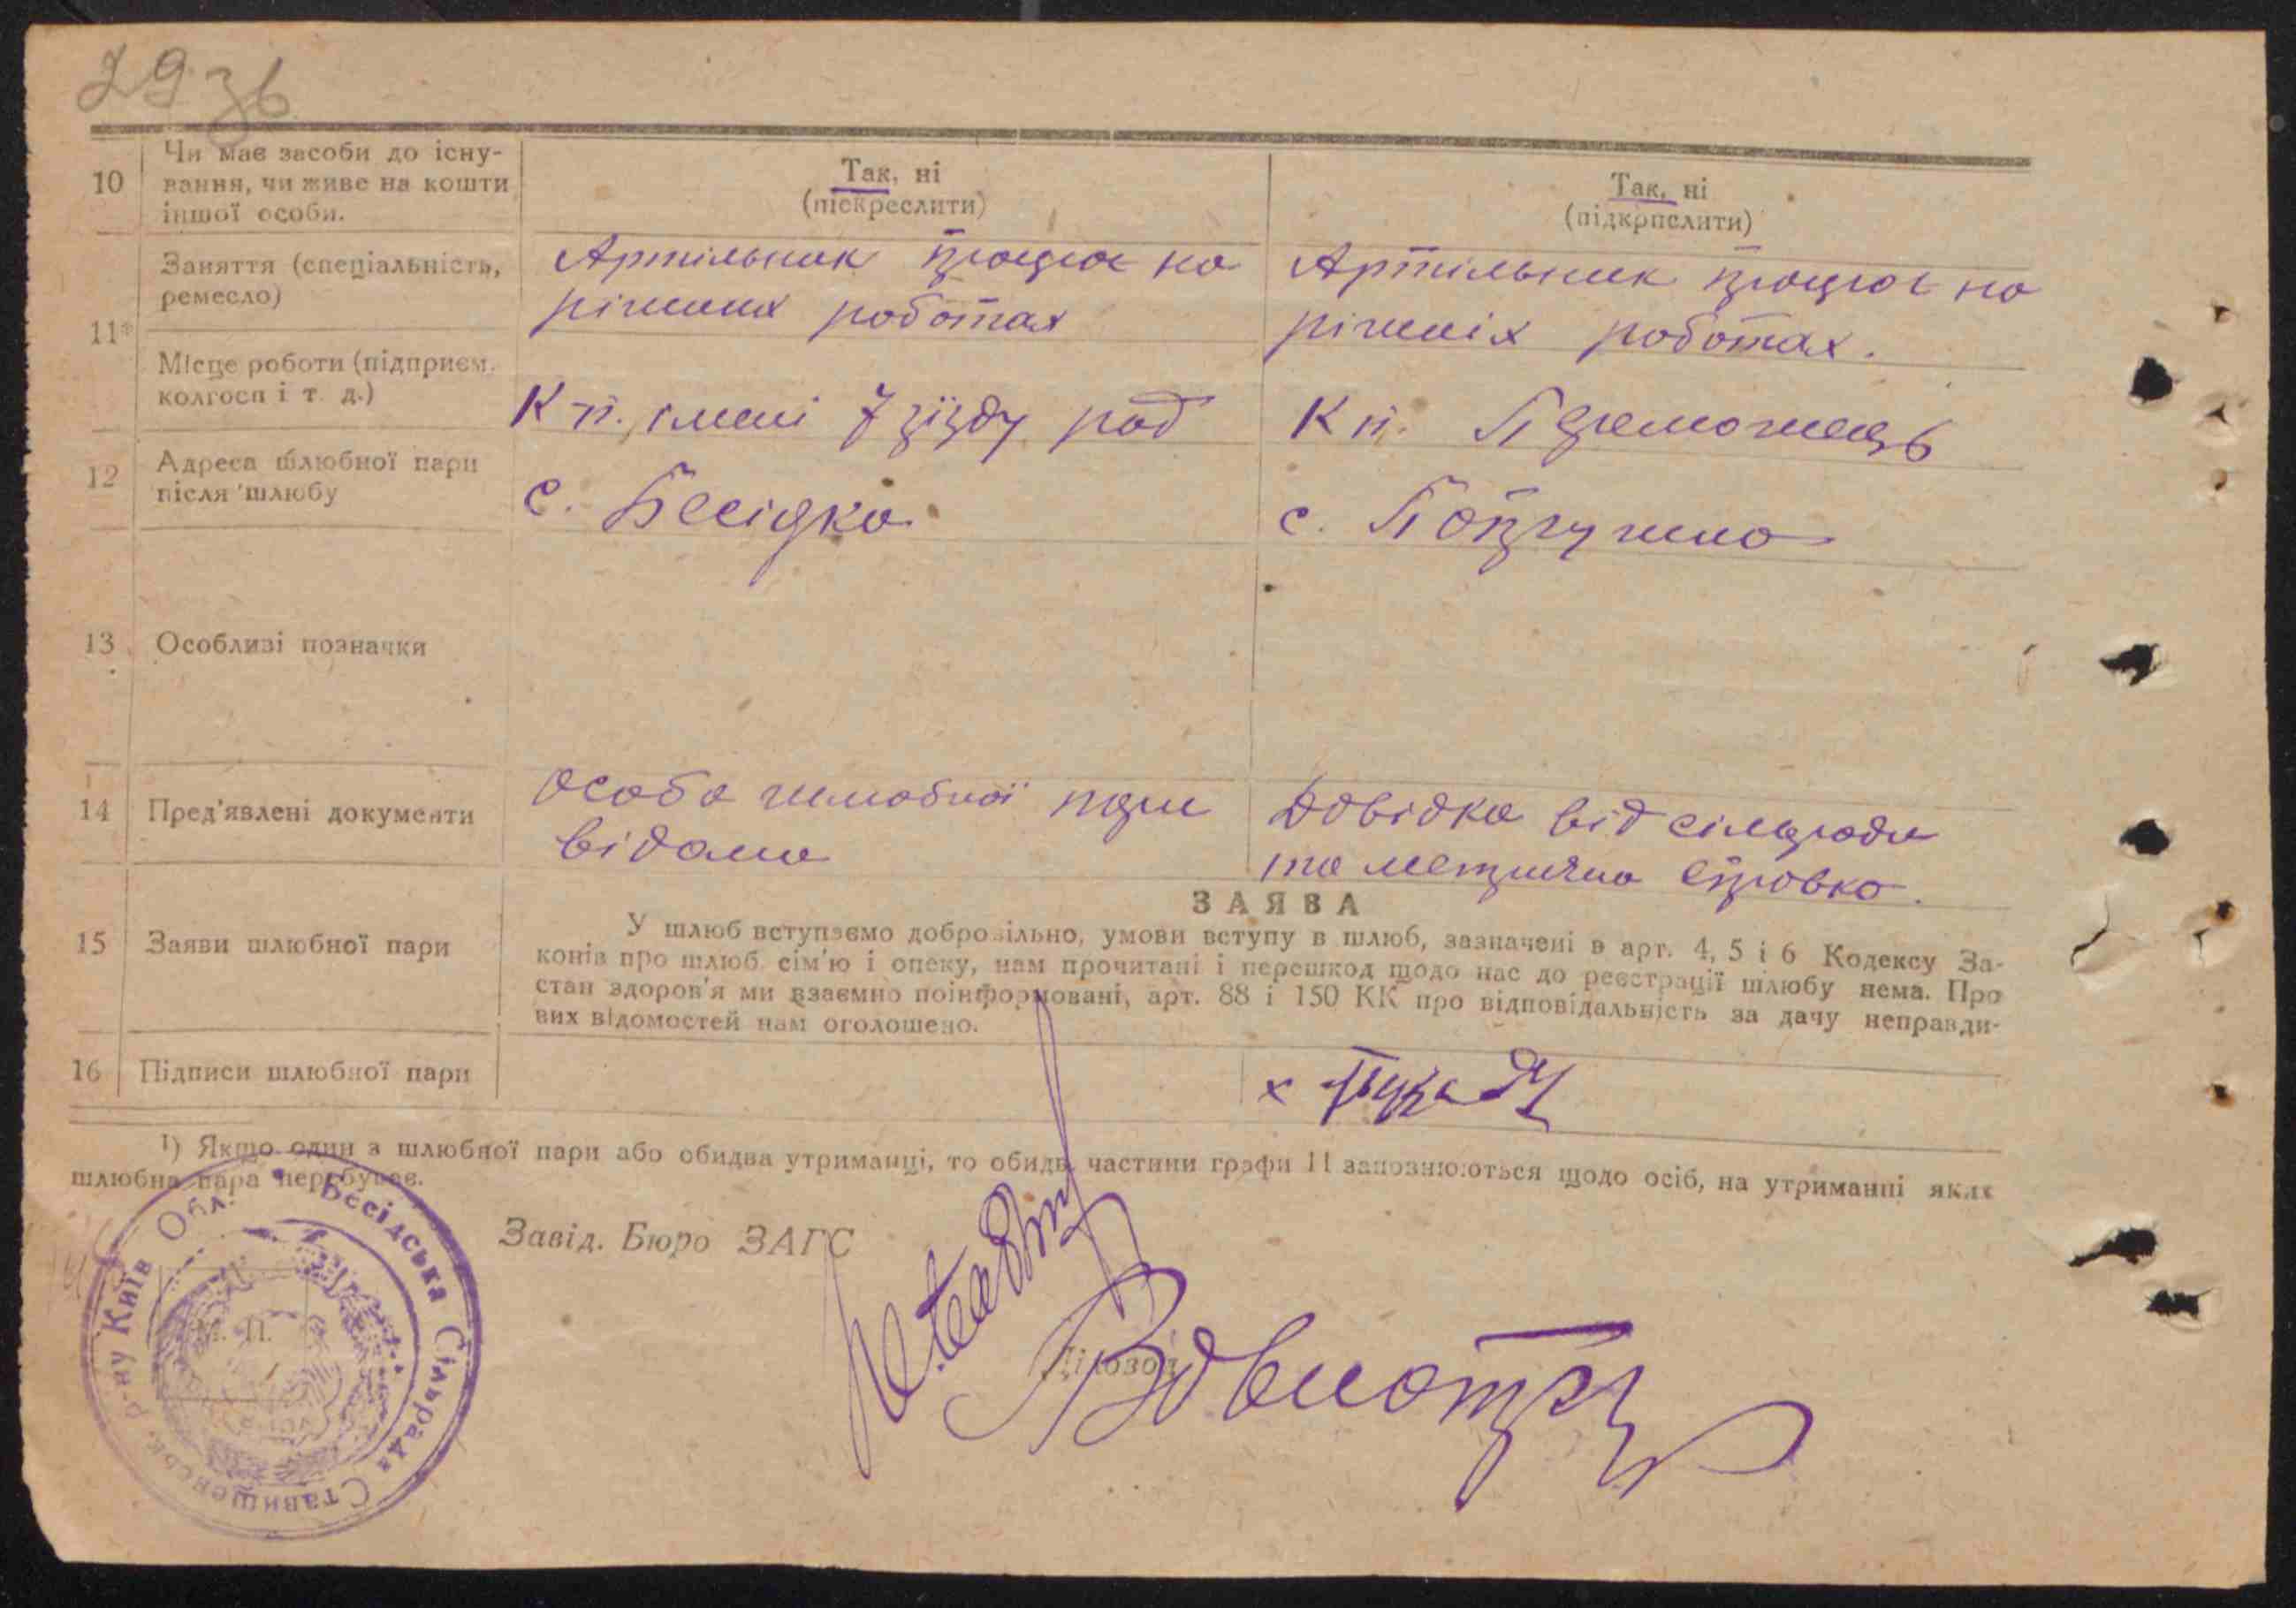 29 зв
10 Чи має засоби до існу-
вання, чи живе на кошти
іншої особи.
Так, ні
(піскреслити)
Так, ні
(підкрпслити)
11*
Заняття (спеціальність,
ремесло)
Артільник працює на
річних роботах
Артільник працює на
річніх роботах.
Місце роботи (підприєм.
колгосп і т. д.)
Кп. імені 7 зїзду рад
Кп. Переможець
12 Адреса шлюбної пари
після шлюбу
с. Бесідка
с. Попружна
13 Особливі позначки
14 Пред'явлені документи
Особа шлюбної пари
відома
Довідка від сільради
та метрична справка.
15 Заяви шлюбної пари
ЗАЯВА
У шлюб вступаємо добровільно, умови вступу в шлюб, зазначені в арт. 4, 5 і 6 Кодексу За-
конів про шлюб, сім'ю і опеку, нам прочитані і перешкод щодо нас до реєстрації шлюбу нема. Про
стан здоров'я ми взаємно поінформовані, арт. 88 і 150 КК про відповідальність за дачу неправди-
вих відомостей нам оголошено.
16 Підписи шлюбної пари
х
¹) Якщо один з шлюбної пари або обидва утриманці, то обидві частини графи 11 заповнюються щодо осіб, на утриманні яких
шлюбна пара перебуває.
Завід. Бюро ЗАГС
Діловод
Бесідська Сільрада Ставищенськ. р-ну Київ Обл.